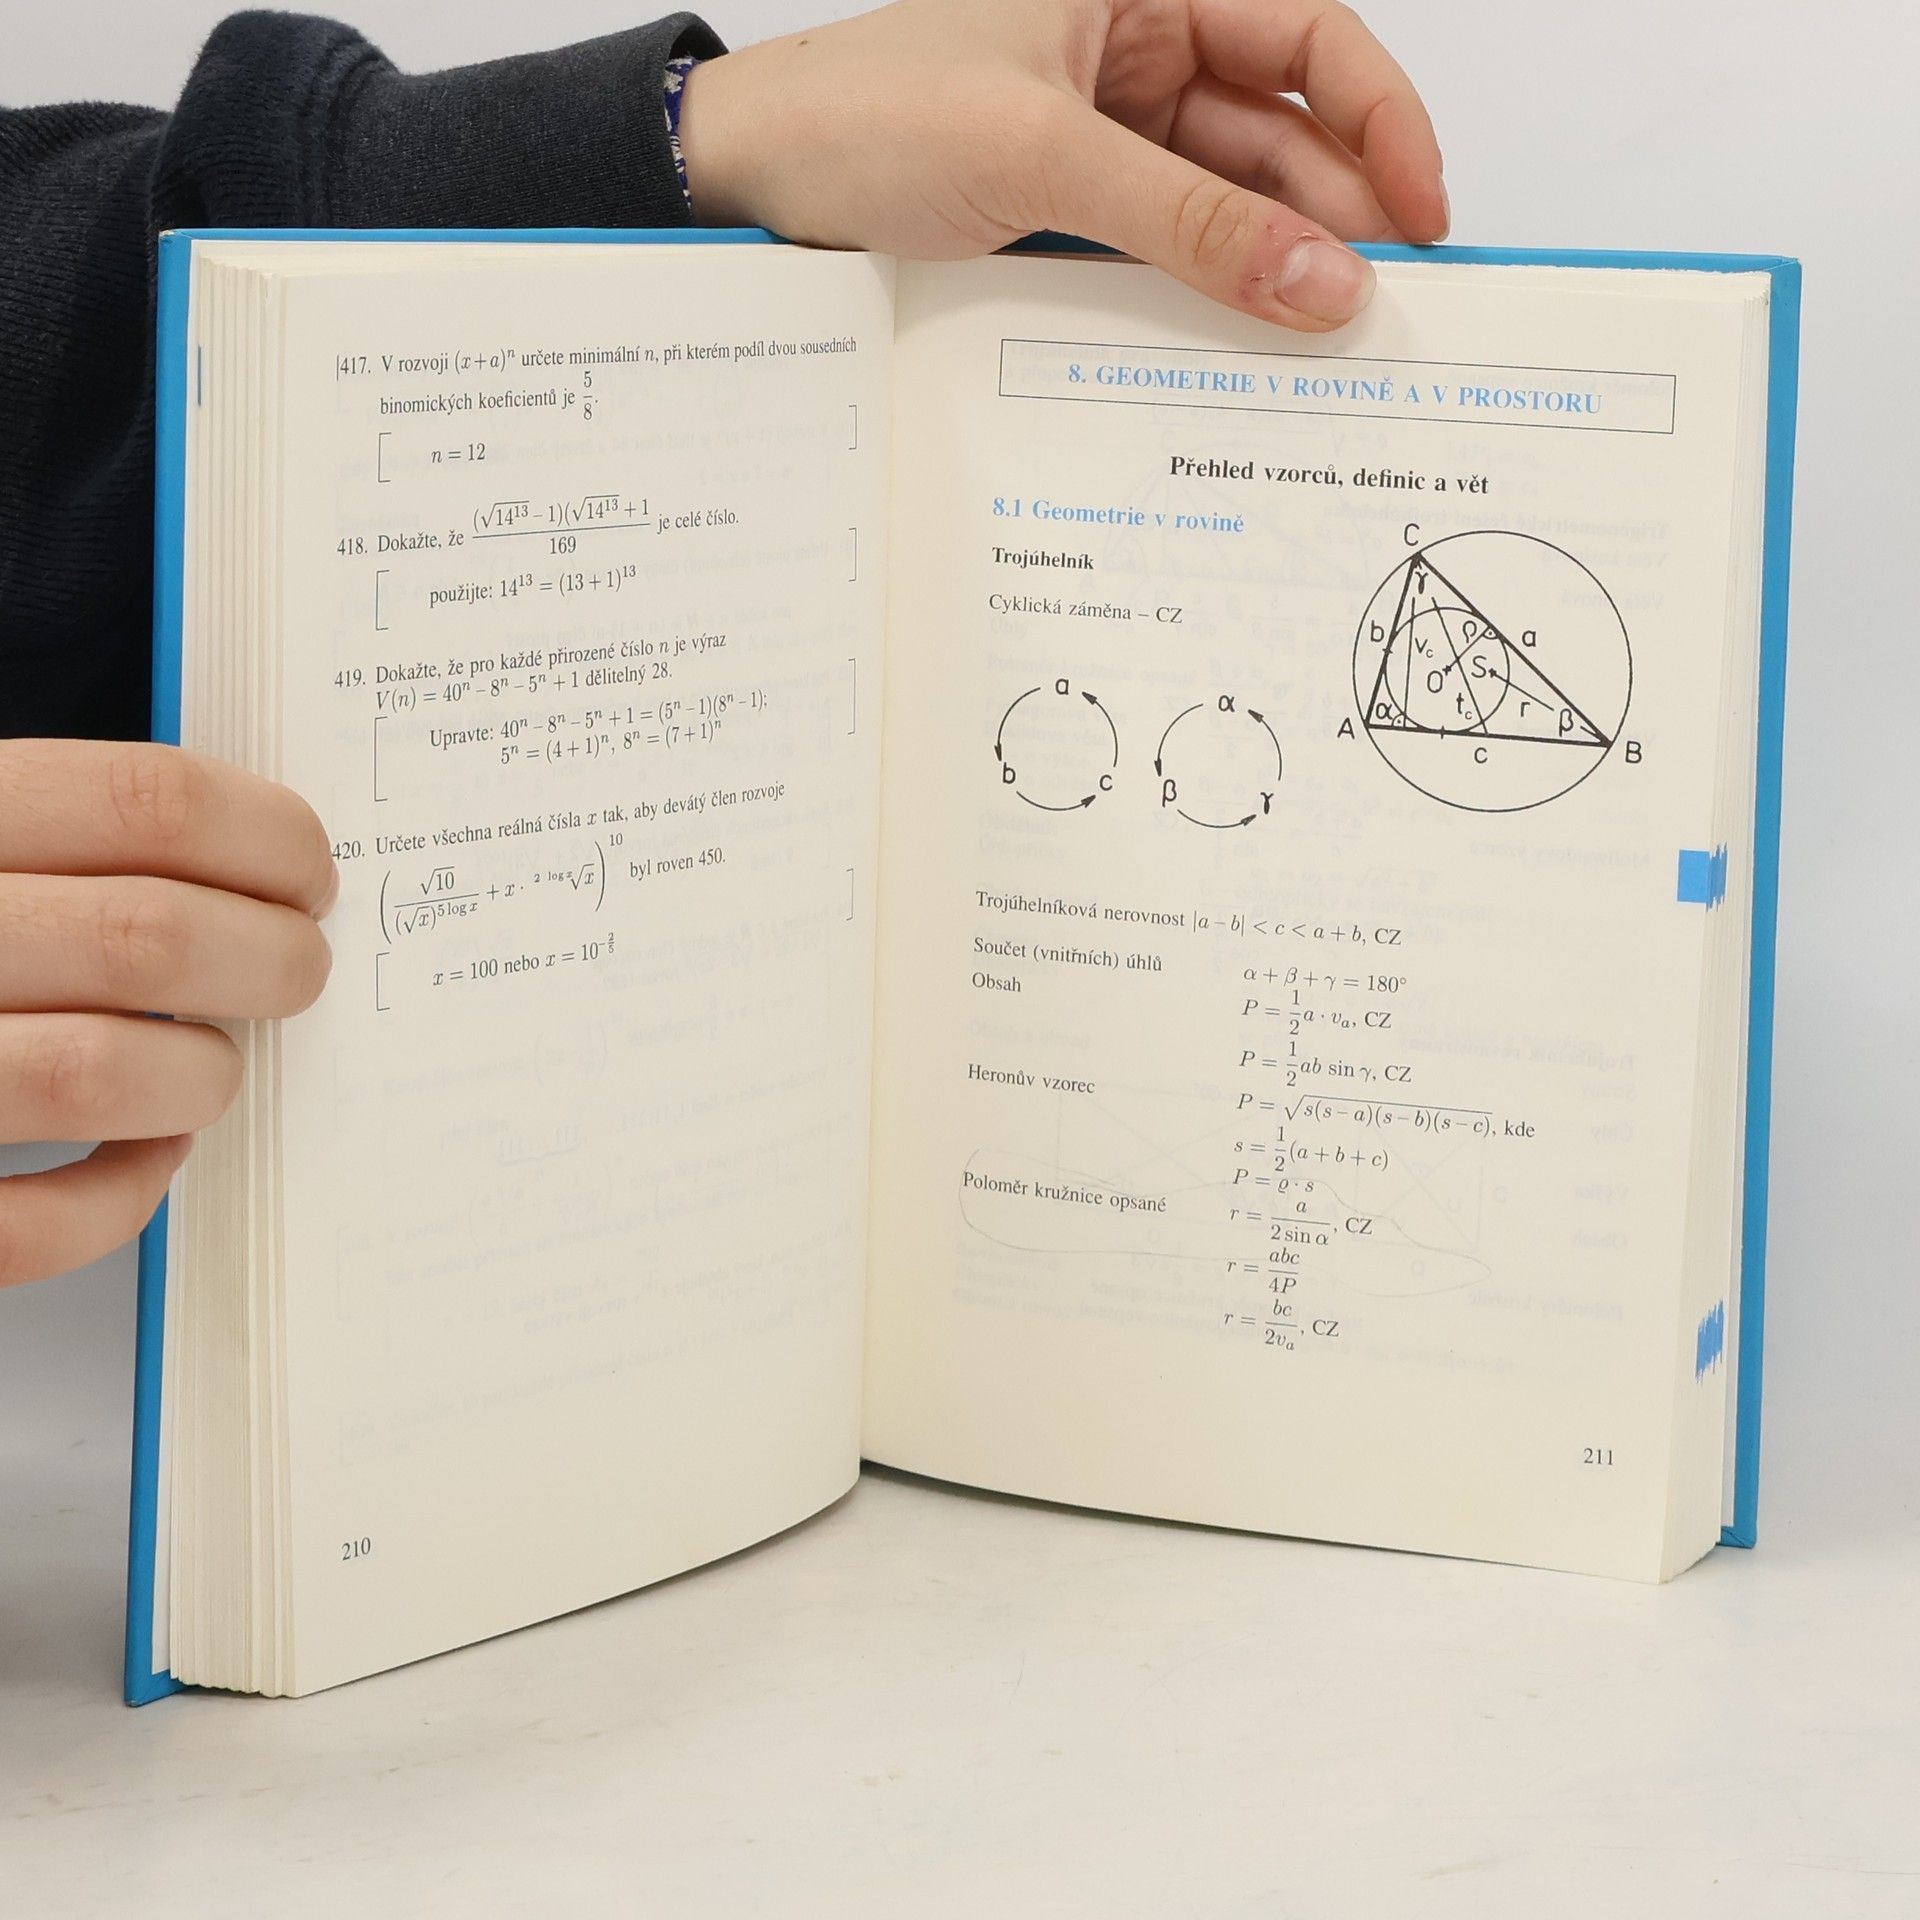 417. V rozvoji (x+a)ⁿ určete minimální n, při kterém podíl dvou sousedních
binomických koeficientů je 5/8.
[ n = 12 ]
418. Dokažte, že (√14¹³ – 1)(√14¹³ + 1 / 169 je celé číslo.
[ použijte: 14¹³ = (13 + 1)¹³ ]
419. Dokažte, že pro každé přirozené číslo n je výraz
V(n) = 40ⁿ – 8ⁿ – 5ⁿ + 1 dělitelný 28.
[ Upravte: 40ⁿ – 8ⁿ – 5ⁿ + 1 = (5ⁿ – 1)(8ⁿ – 1);
5ⁿ = (4 + 1)ⁿ, 8ⁿ = (7 + 1)ⁿ ]
420. Určete všechna reálná čísla x tak, aby devátý člen rozvoje
(√10 / (√x)^(5 log x) + x · ^(2 log x)√x)^10 byl roven 450.
[ x = 100 nebo x = 10^(–2/5) ]
210
8. GEOMETRIE V ROVINĚ A V PROSTORU
Přehled vzorců, definic a vět
8.1 Geometrie v rovině
Trojúhelník
Cyklická záměna – CZ
a
b c
α
β γ
C
γ
b v_c ϱ a
O S
A α t_c r β B
c
Trojúhelníková nerovnost |a – b| < c < a + b, CZ
Součet (vnitřních) úhlů α + β + γ = 180°
Obsah P = 1/2 a · v_a, CZ
P = 1/2 ab sin γ, CZ
Heronův vzorec P = √(s(s – a)(s – b)(s – c)), kde
s = 1/2 (a + b + c)
P = ϱ · s
Poloměr kružnice opsané r = a / 2 sin α, CZ
r = abc / 4P
r = bc / 2v_a, CZ
211